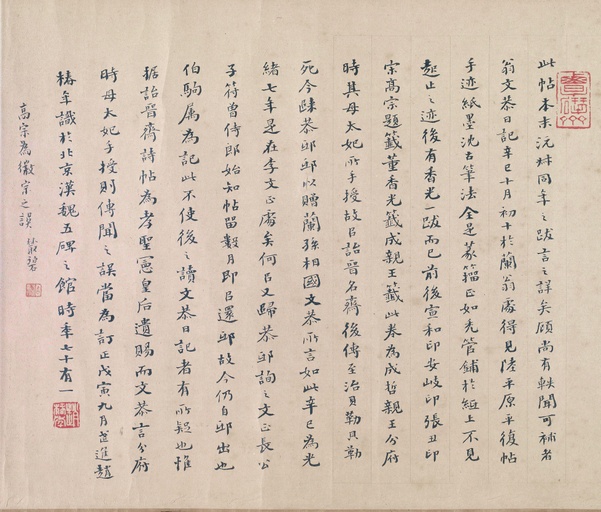 此帖本末沅叔同年之跋言之詳矣顧尚有軼聞可補者
翁文恭日記辛巳十月初十於蘭翁處得見陸平原平復帖
手迹紙墨沈古筆法全是篆籀正如禿管鋪於紙上不見
起止之迹後有香光一跋而已前後宣和印安岐印張丑印
宋高宗題籤董香光籤成親王籤此卷為成哲親王分府
時其母太妃所手授故以詒晉名齋後傳至治貝勒貝勒
死今歸恭邸邸以贈蘭孫相國文恭所言如此辛巳為光
緒七年是在李文正處矣何以又歸恭邸詢之文正長公
子符曾侍郎始知帖留數月即以還邸故今仍自邸出也
伯駒属為記此不使後之讀文恭日記者有所疑也惟
据詒晉齋詩帖為孝聖憲皇后遺賜而文恭言分府
時母太妃手授則傳聞之誤當為訂正戊寅九月 進趙
椿年識於北京漢魏五碑之館時年七十有一
高宗為徽宗之誤